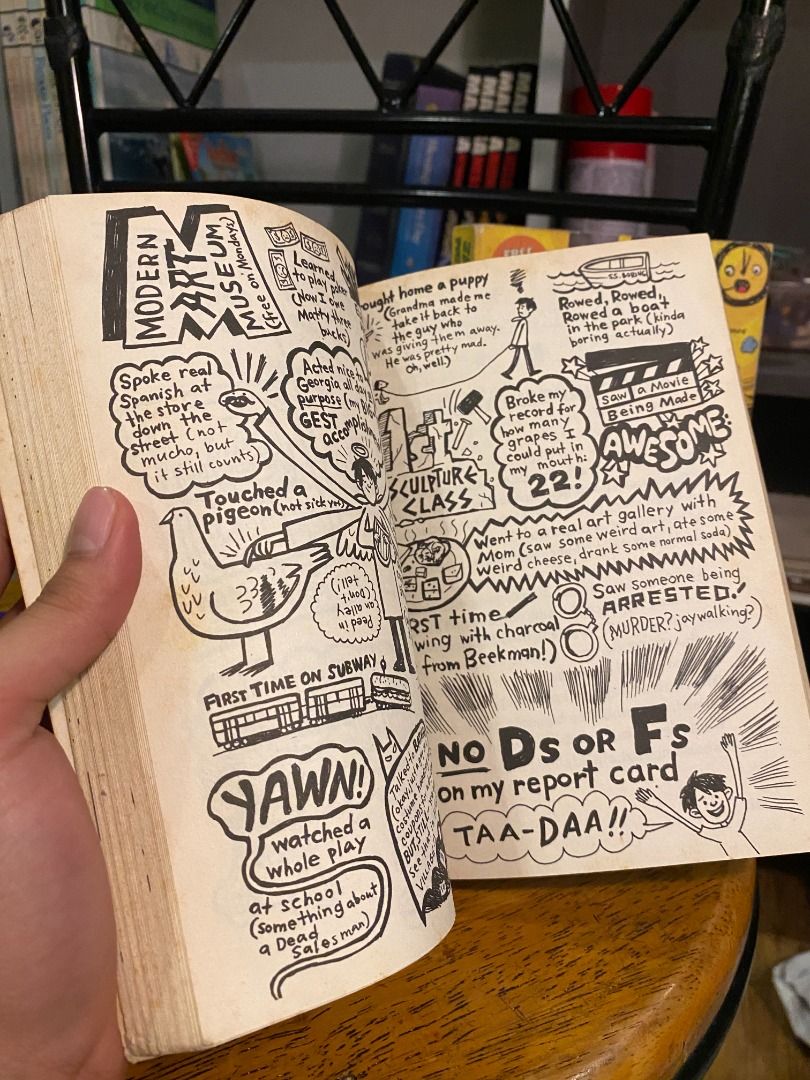 MODERN
ART
MUSEUM
(free on Mondays)
Learned
to play poker
(Now I owe
Matty three
bucks)
Spoke real
Spanish at
the store
down the
street (not
mucho, but
it still counts)
Acted nice to
Georgia all day
purpose (my
GEST
Touched a
pigeon (not sick yet)
Peed in
an alley
(Don't
tell!)
FIRST TIME ON SUBWAY
YAWN!
watched a
whole play
at school
(something about
a Dead
Salesman)
Talked
BUT STILL
see
ought home a puppy
(Grandma made me
take it back to
the guy who
was giving them away.
He was pretty mad.
Oh, well.)
S.S. BORING
Rowed, Rowed,
Rowed a boat
in the park (kinda
boring actually)
1st
SCULPTURE
CLASS
Broke my
record for
how many
grapes I
could put in
my mouth:
22!
Saw a Movie
Being Made
AWESOME
Went to a real art gallery with
Mom (saw some weird art, ate some
weird cheese, drank some normal soda)
RST time
wing with charcoal
from Beekman!)
Saw someone being
ARRESTED!
(MURDER? jaywalking?)
NO Ds OR Fs
on my report card
TAA-DAA!!